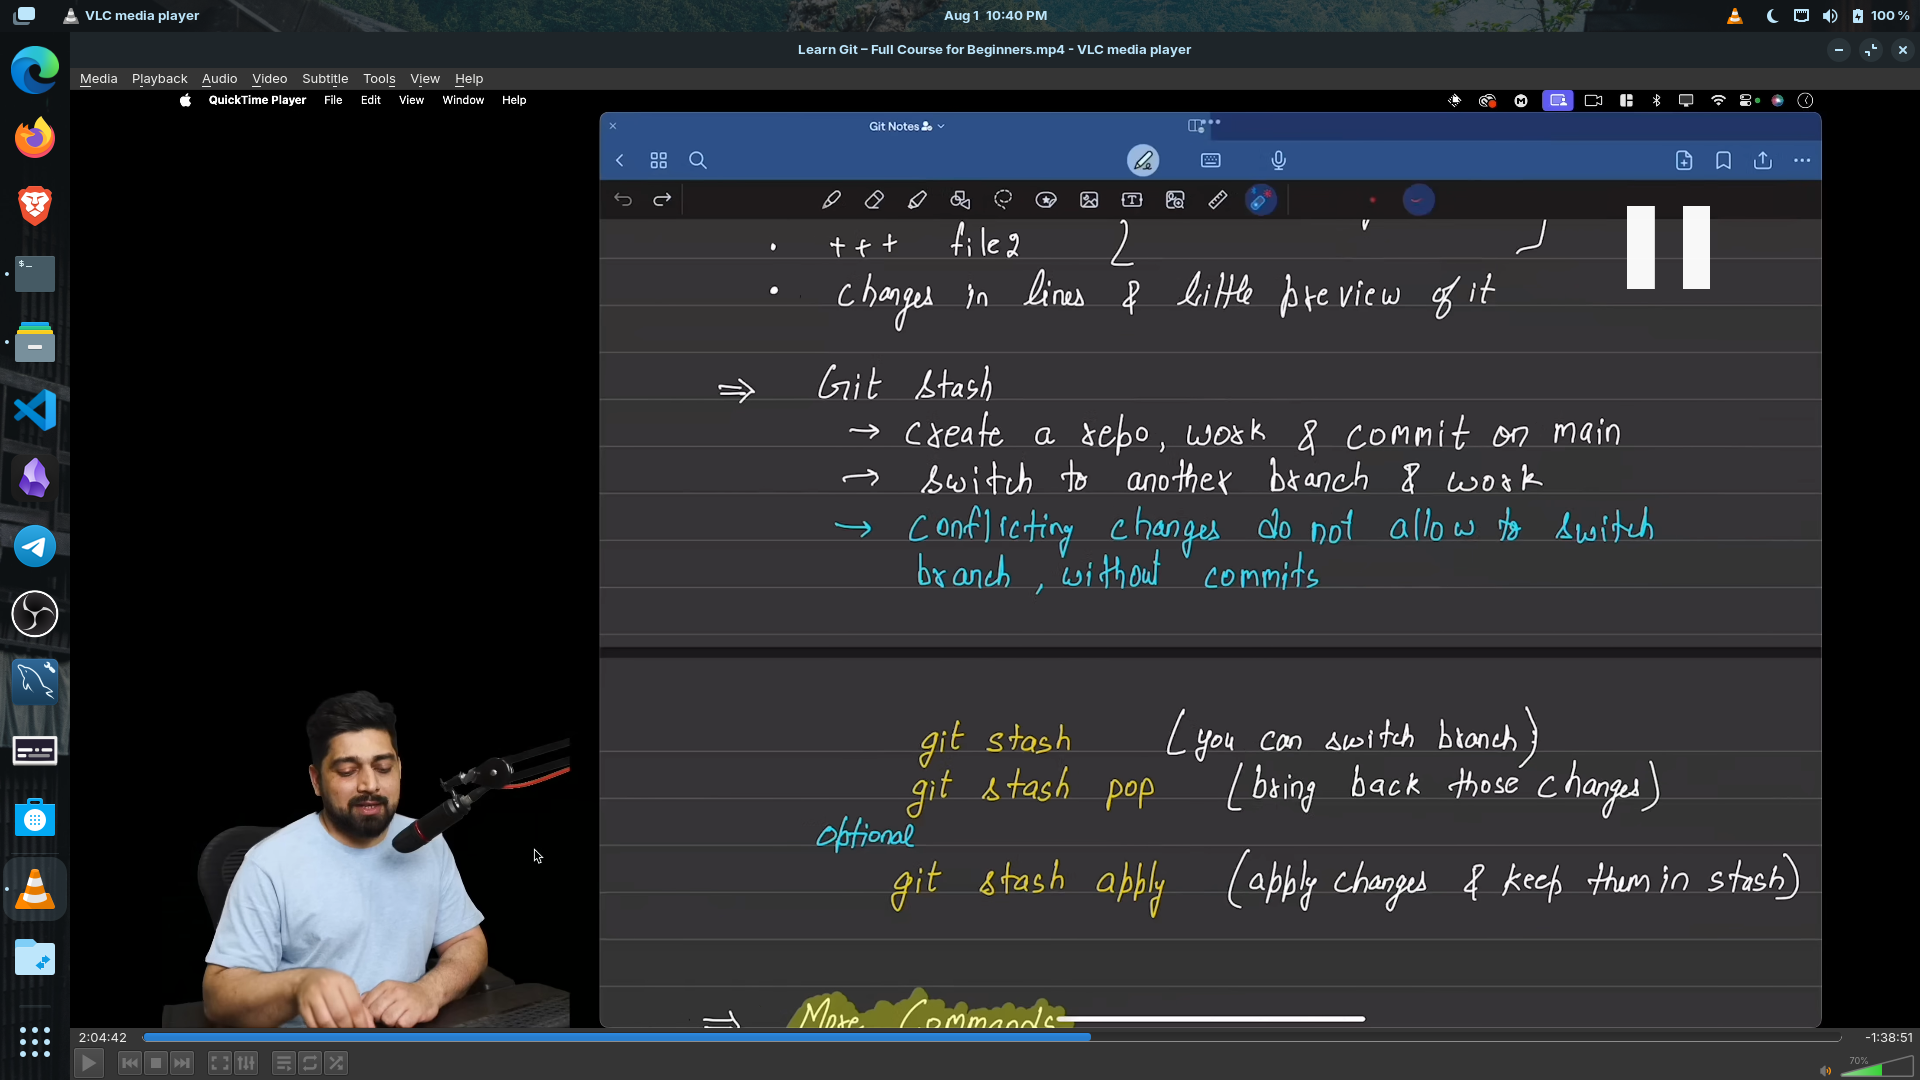 VLC media player
Aug 1 10:40 PM
100 %
Learn Git – Full Course for Beginners.mp4 - VLC media player
Media Playback Audio Video Subtitle Tools View Help
QuickTime Player File Edit View Window Help
Git Notes
• +++ file2
• changes in lines & little preview of it
⇒ Git stash
→ create a repo, work & commit on main
→ switch to another branch & work
→ conflicting changes do not allow to switch
branch, without commits
git stash (you can switch branch)
git stash pop (bring back those changes)
optional
git stash apply (apply changes & keep them in stash)
⇒ More Commands
2:04:42
-1:38:51
70%